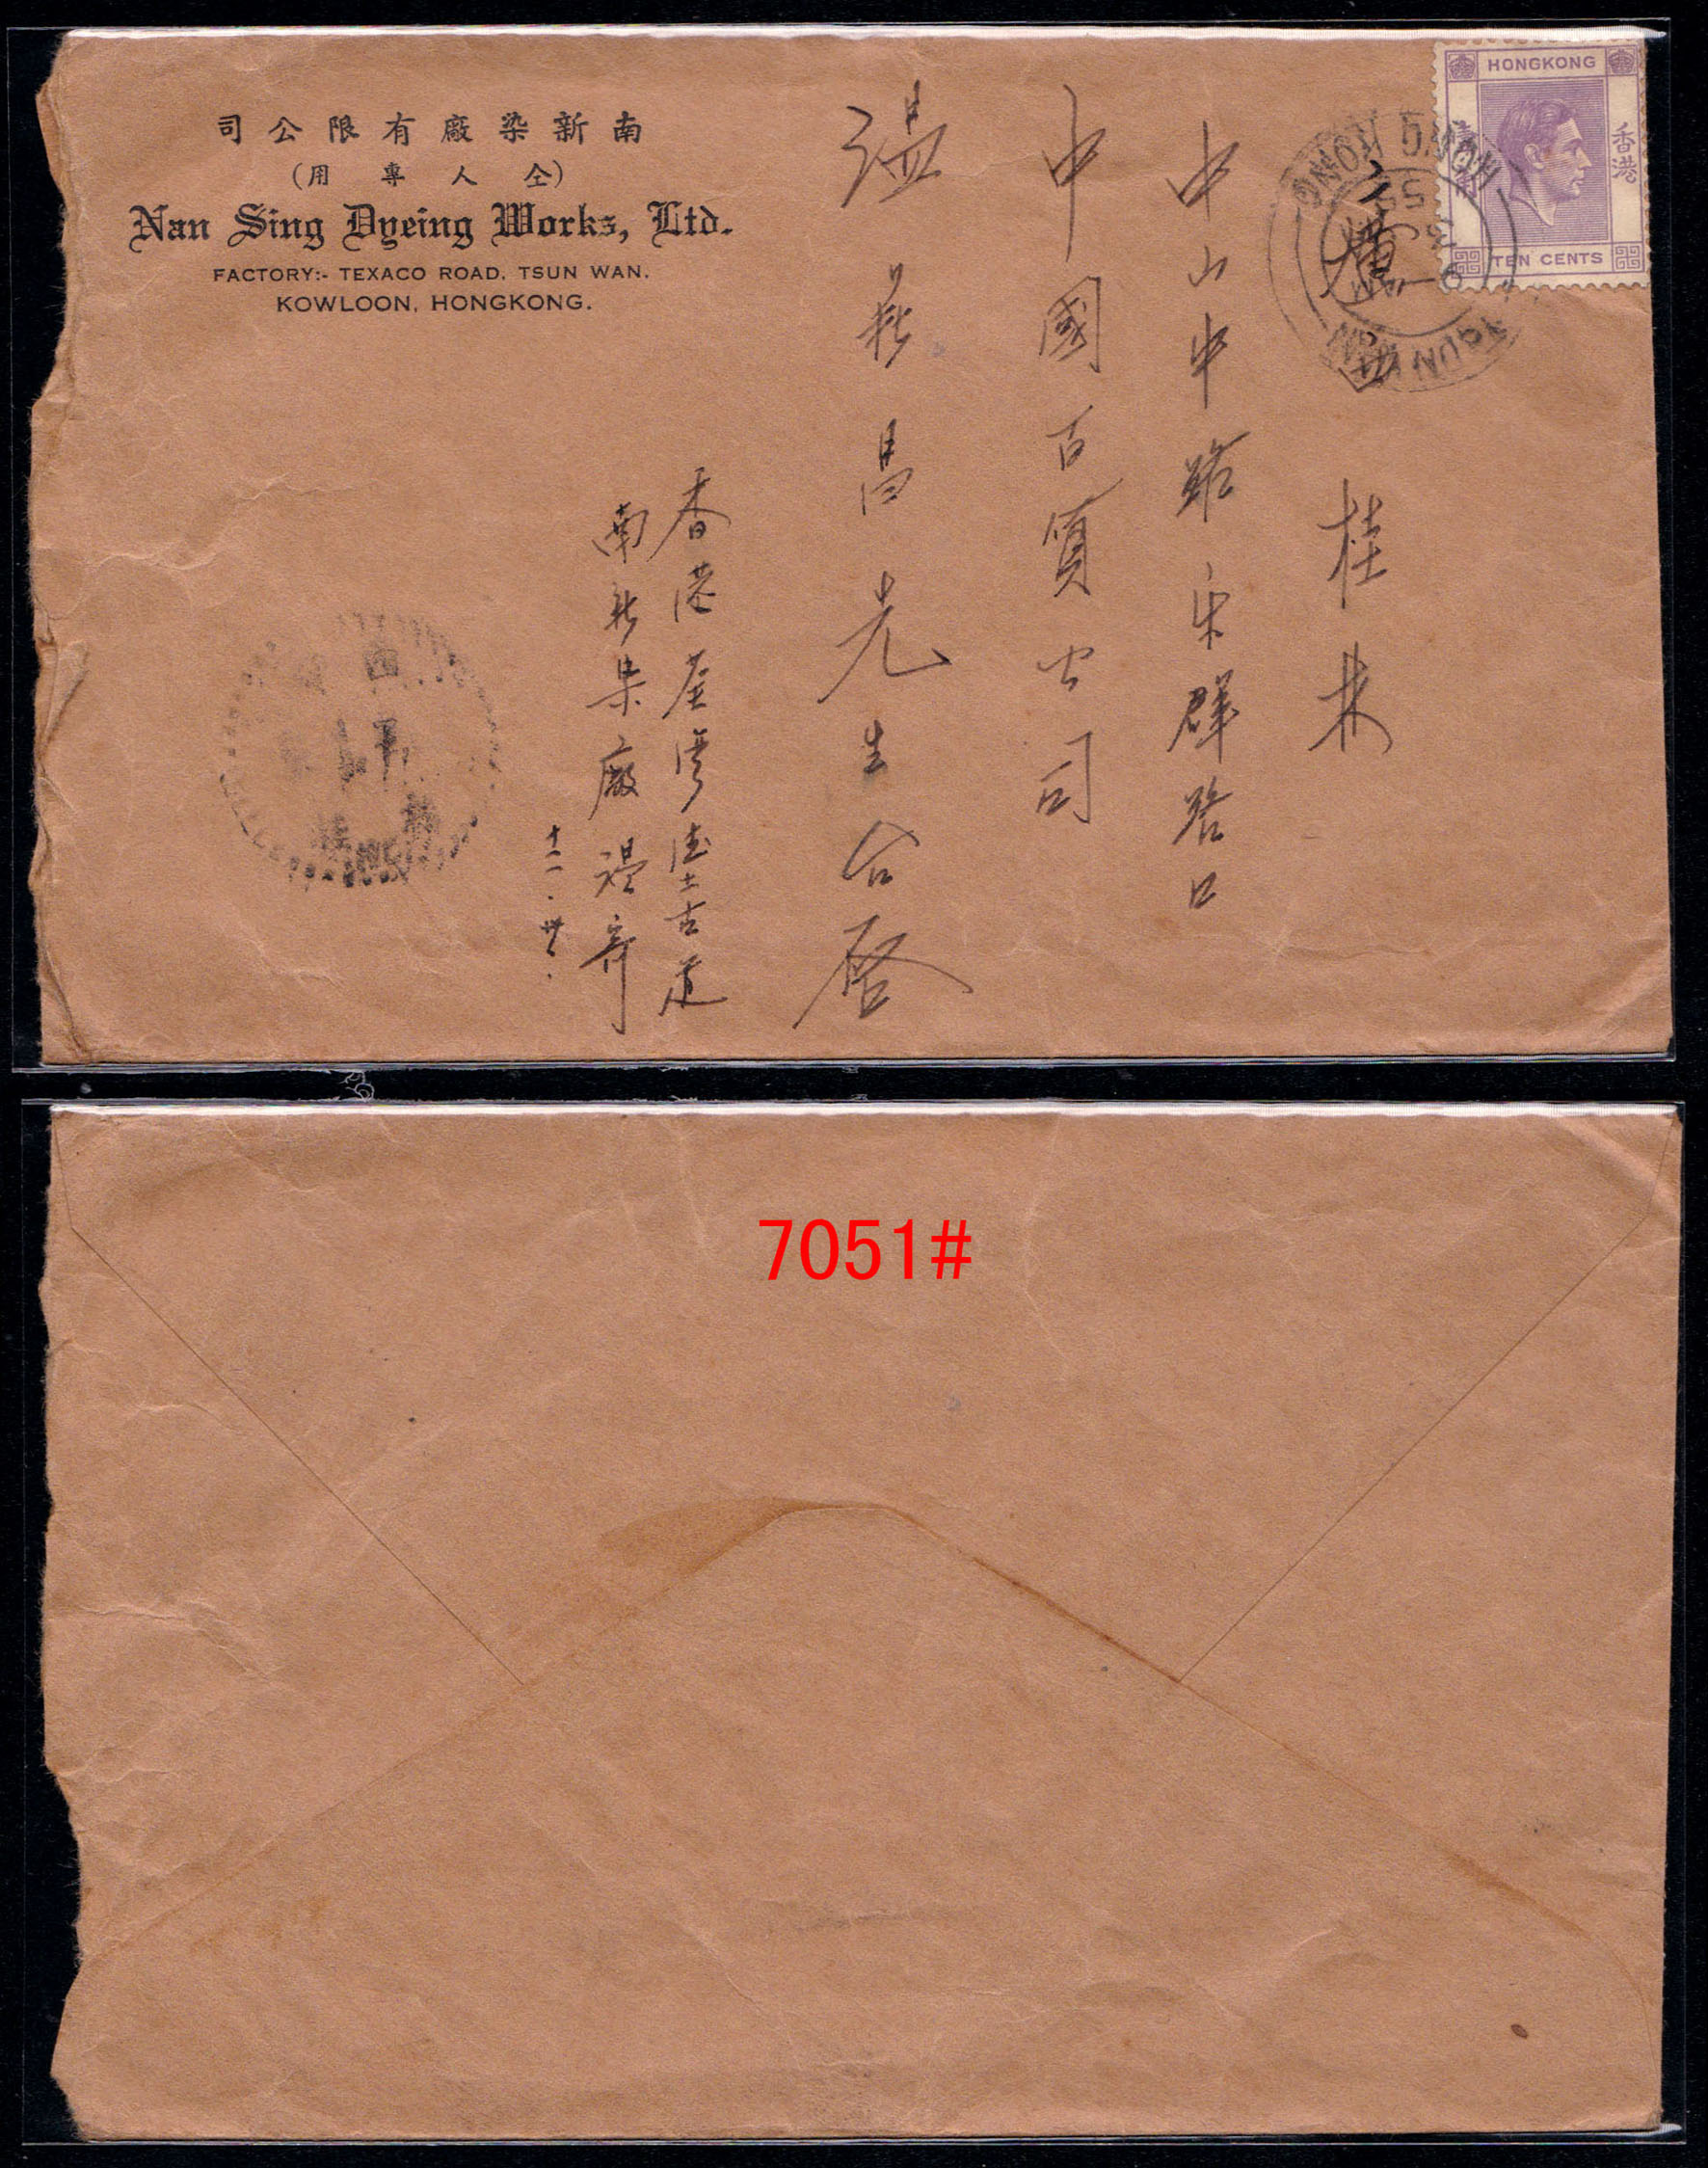 司公限有廠染新南
(用專人仝)
Nan Sing Dyeing Works, Ltd.
FACTORY:- TEXACO ROAD, TSUN WAN.
KOWLOON, HONGKONG.
HONGKONG
香港
TEN CENTS
HONG KONG
TSUN WAN
廣西 桂林
中山中路 群路口
中國百貨公司
溫 昌先生台啓
香港荃灣德士古道
南新染廠溫寄
7051#